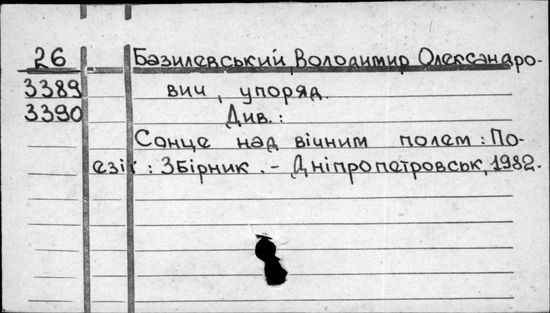 26 Базилевський, Володимир Олександро-
3389 вич, упоряд.
3390 Див.:
Сонце над вічним полем : По-
езії : Збірник. - Дніпропетровськ, 1982.